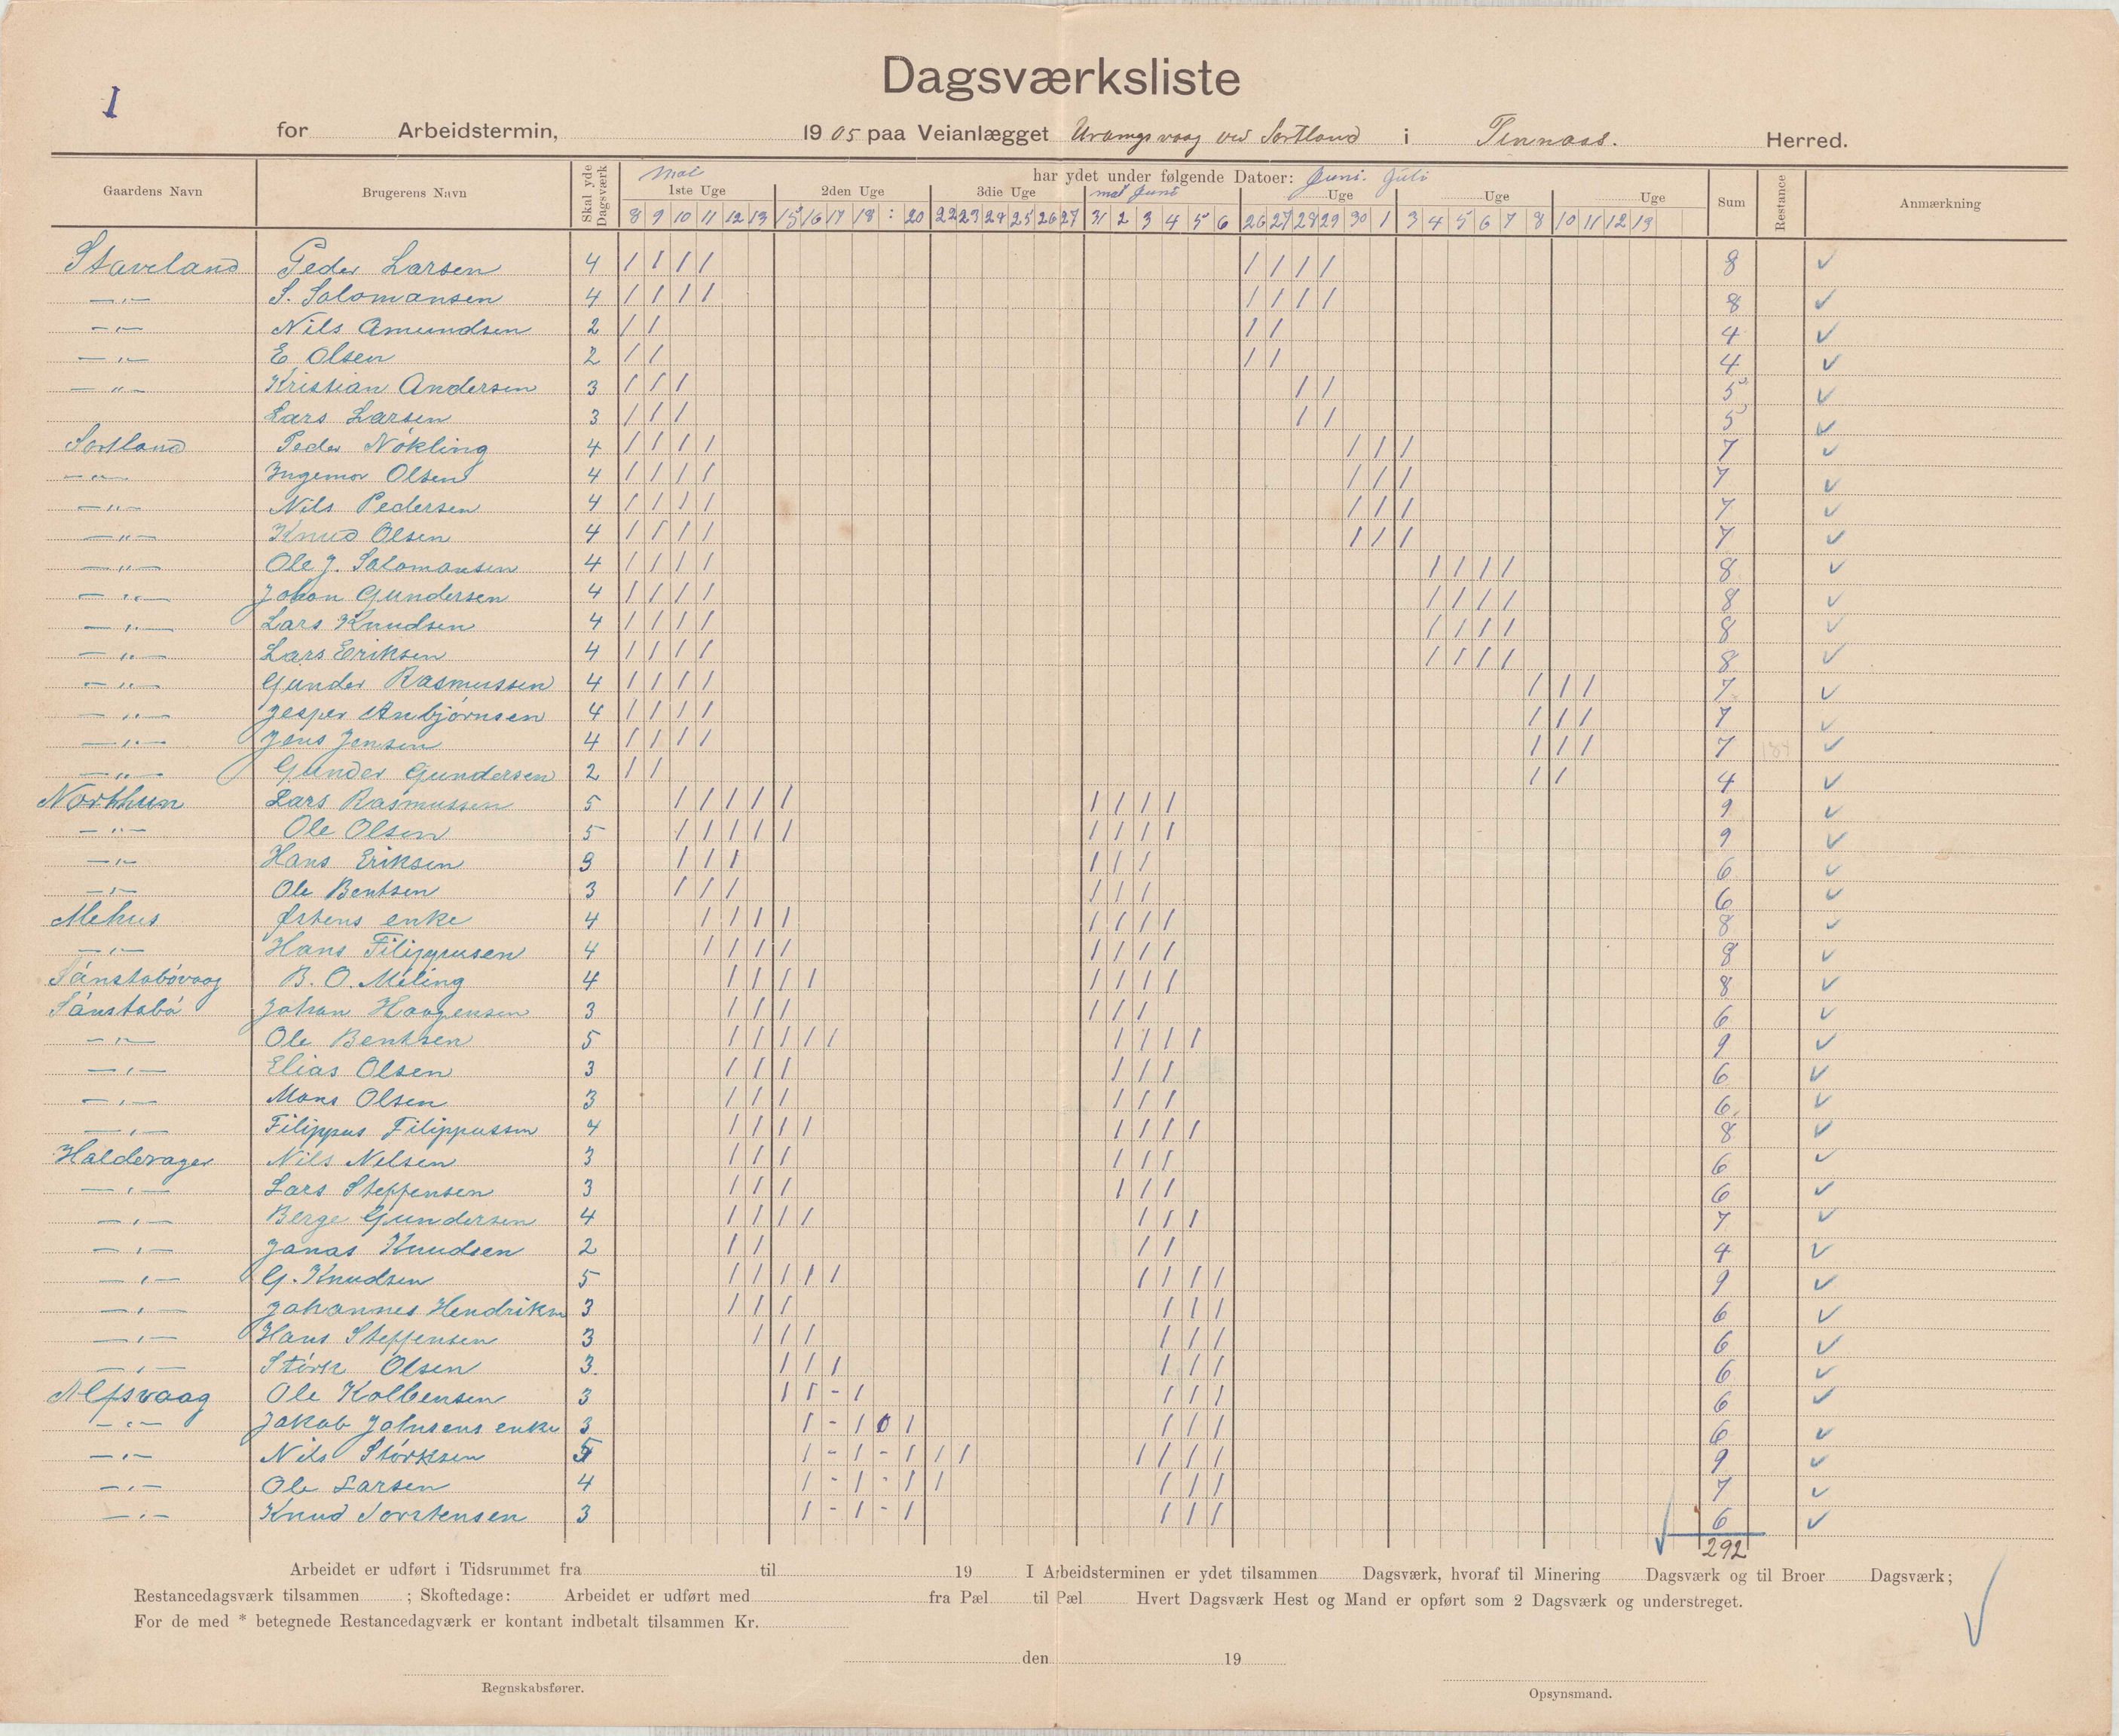 I
Dagsværksliste
for Arbeidstermin, 1905 paa Veianlægget Urangsvaag ved Sortland i Finnaas. Herred.
Gaardens Navn Brugerens Navn Skal yde Dagsværk har ydet under følgende Datoer: Juni. Juli Sum Restance Anmærkning
Mai mai Juni
1ste Uge 2den Uge 3die Uge Uge Uge Uge
8 9 10 11 12 13 15 16 17 18 : 20 22 23 24 25 26 27 31 2 3 4 5 6 26 27 28 29 30 1 3 4 5 6 7 8 10 11 12 13
Staveland Peder Larsen 4 / / / / / / / / 8 ✓
— „ — S. Salomansen 4 / / / / / / / / 8 ✓
— „ — Nils Amundsen 2 / / / / 4 ✓
— „ — E Olsen 2 / / / / 4 ✓
— „ — Kristian Andersen 3 / / / / / 5 ✓
Lars Larsen 3 / / / / / 5 ✓
Sortland Peder Nökling 4 / / / / / / / 7 ✓
— „ — Ingemor Olsen 4 / / / / / / / 7 ✓
— „ — Nils Pedersen 4 / / / / / / / 7 ✓
— „ — Knud Olsen 4 / / / / / / / 7 ✓
— „ — Ole J. Salomansen 4 / / / / / / / / 8 ✓
— „ — Johan Gundersen 4 / / / / / / / / 8 ✓
— „ — Lars Knudsen 4 / / / / / / / / 8 ✓
— „ — Lars Eriksen 4 / / / / / / / / 8 ✓
— „ — Gunder Rasmussen 4 / / / / / / / 7 ✓
— „ — Jesper Anbjörnsen 4 / / / / / / / 7 ✓
— „ — Jens Jensen 4 / / / / / / / 7 ✓
— „ — Gunder Gundersen 2 / / / / 4 ✓
Northun Lars Rasmussen 5 / / / / / / / / / 9 ✓
— „ — Ole Olsen 5 / / / / / / / / / 9 ✓
— „ — Hans Eriksen 3 / / / / / / 6 ✓
— „ — Ole Bentsen 3 / / / / / / 6 ✓
Mehus Østens enke 4 / / / / / / / / 8 ✓
— „ — Hans Filippusen 4 / / / / / / / / 8 ✓
Sánstabóvaag B. O. Meling 4 / / / / / / / / 8 ✓
Sánstabó Johan Haagensen 3 / / / / / / 6 ✓
— „ — Ole Bentsen 5 / / / / / / / / / 9 ✓
— „ — Elias Olsen 3 / / / / / / 6 ✓
— „ — Mons Olsen 3 / / / / / / 6 ✓
— „ — Filippus Filippussen 4 / / / / / / / / 8 ✓
Halderager Nils Nelsen 3 / / / / / / 6 ✓
— „ — Lars Steffensen 3 / / / / / / 6 ✓
— „ — Berge Gundersen 4 / / / / / / / 7 ✓
— „ — Janas Knudsen 2 / / / / 4 ✓
— „ — G. Knudsen 5 / / / / / / / / / 9 ✓
— „ — Johannes Hendriksn 3 / / / / / / 6 ✓
— „ — Hans Steffensen 3 / / / / / / 6 ✓
— „ — Störk Olsen 3. / / / / / / 6 ✓
Alfsvaag Ole Kolbensen 3 / / - / / / / 6 ✓
— „ — Jakob Johnsens enke 3 / - / 0 / / / / 6 ✓
— „ — Nils Störksen 5 / - / - / / / / / / / 9 ✓
— „ — Ole Larsen 4 / - / - / / / / / 7 ✓
— „ — Knud Torstensen 3 / - / - / / / / 6 ✓
✓ 292
Arbeidet er udført i Tidsrummet fra til 19 I Arbeidsterminen er ydet tilsammen Dagsværk, hvoraf til Minering Dagsværk og til Broer Dagsværk;
Restancedagsværk tilsammen ; Skoftedage: Arbeidet er udført med fra Pæl til Pæl Hvert Dagsværk Hest og Mand er opført som 2 Dagsværk og understreget.
For de med * betegnede Restancedagværk er kontant indbetalt tilsammen Kr. ✓
den 19
Regnskabsfører. Opsynsmand.